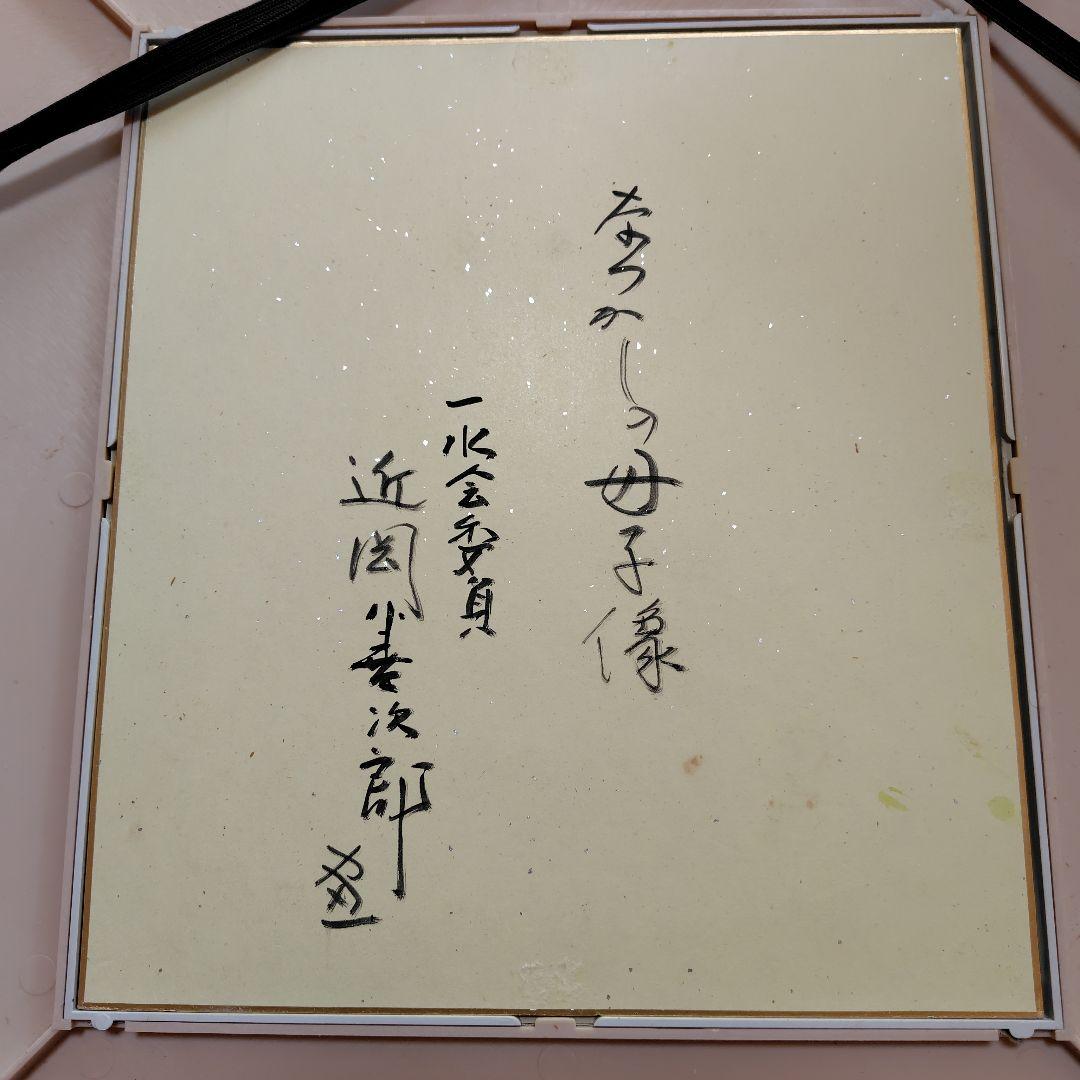 なつかしの母子像
一水会委員
近岡善次郎
画